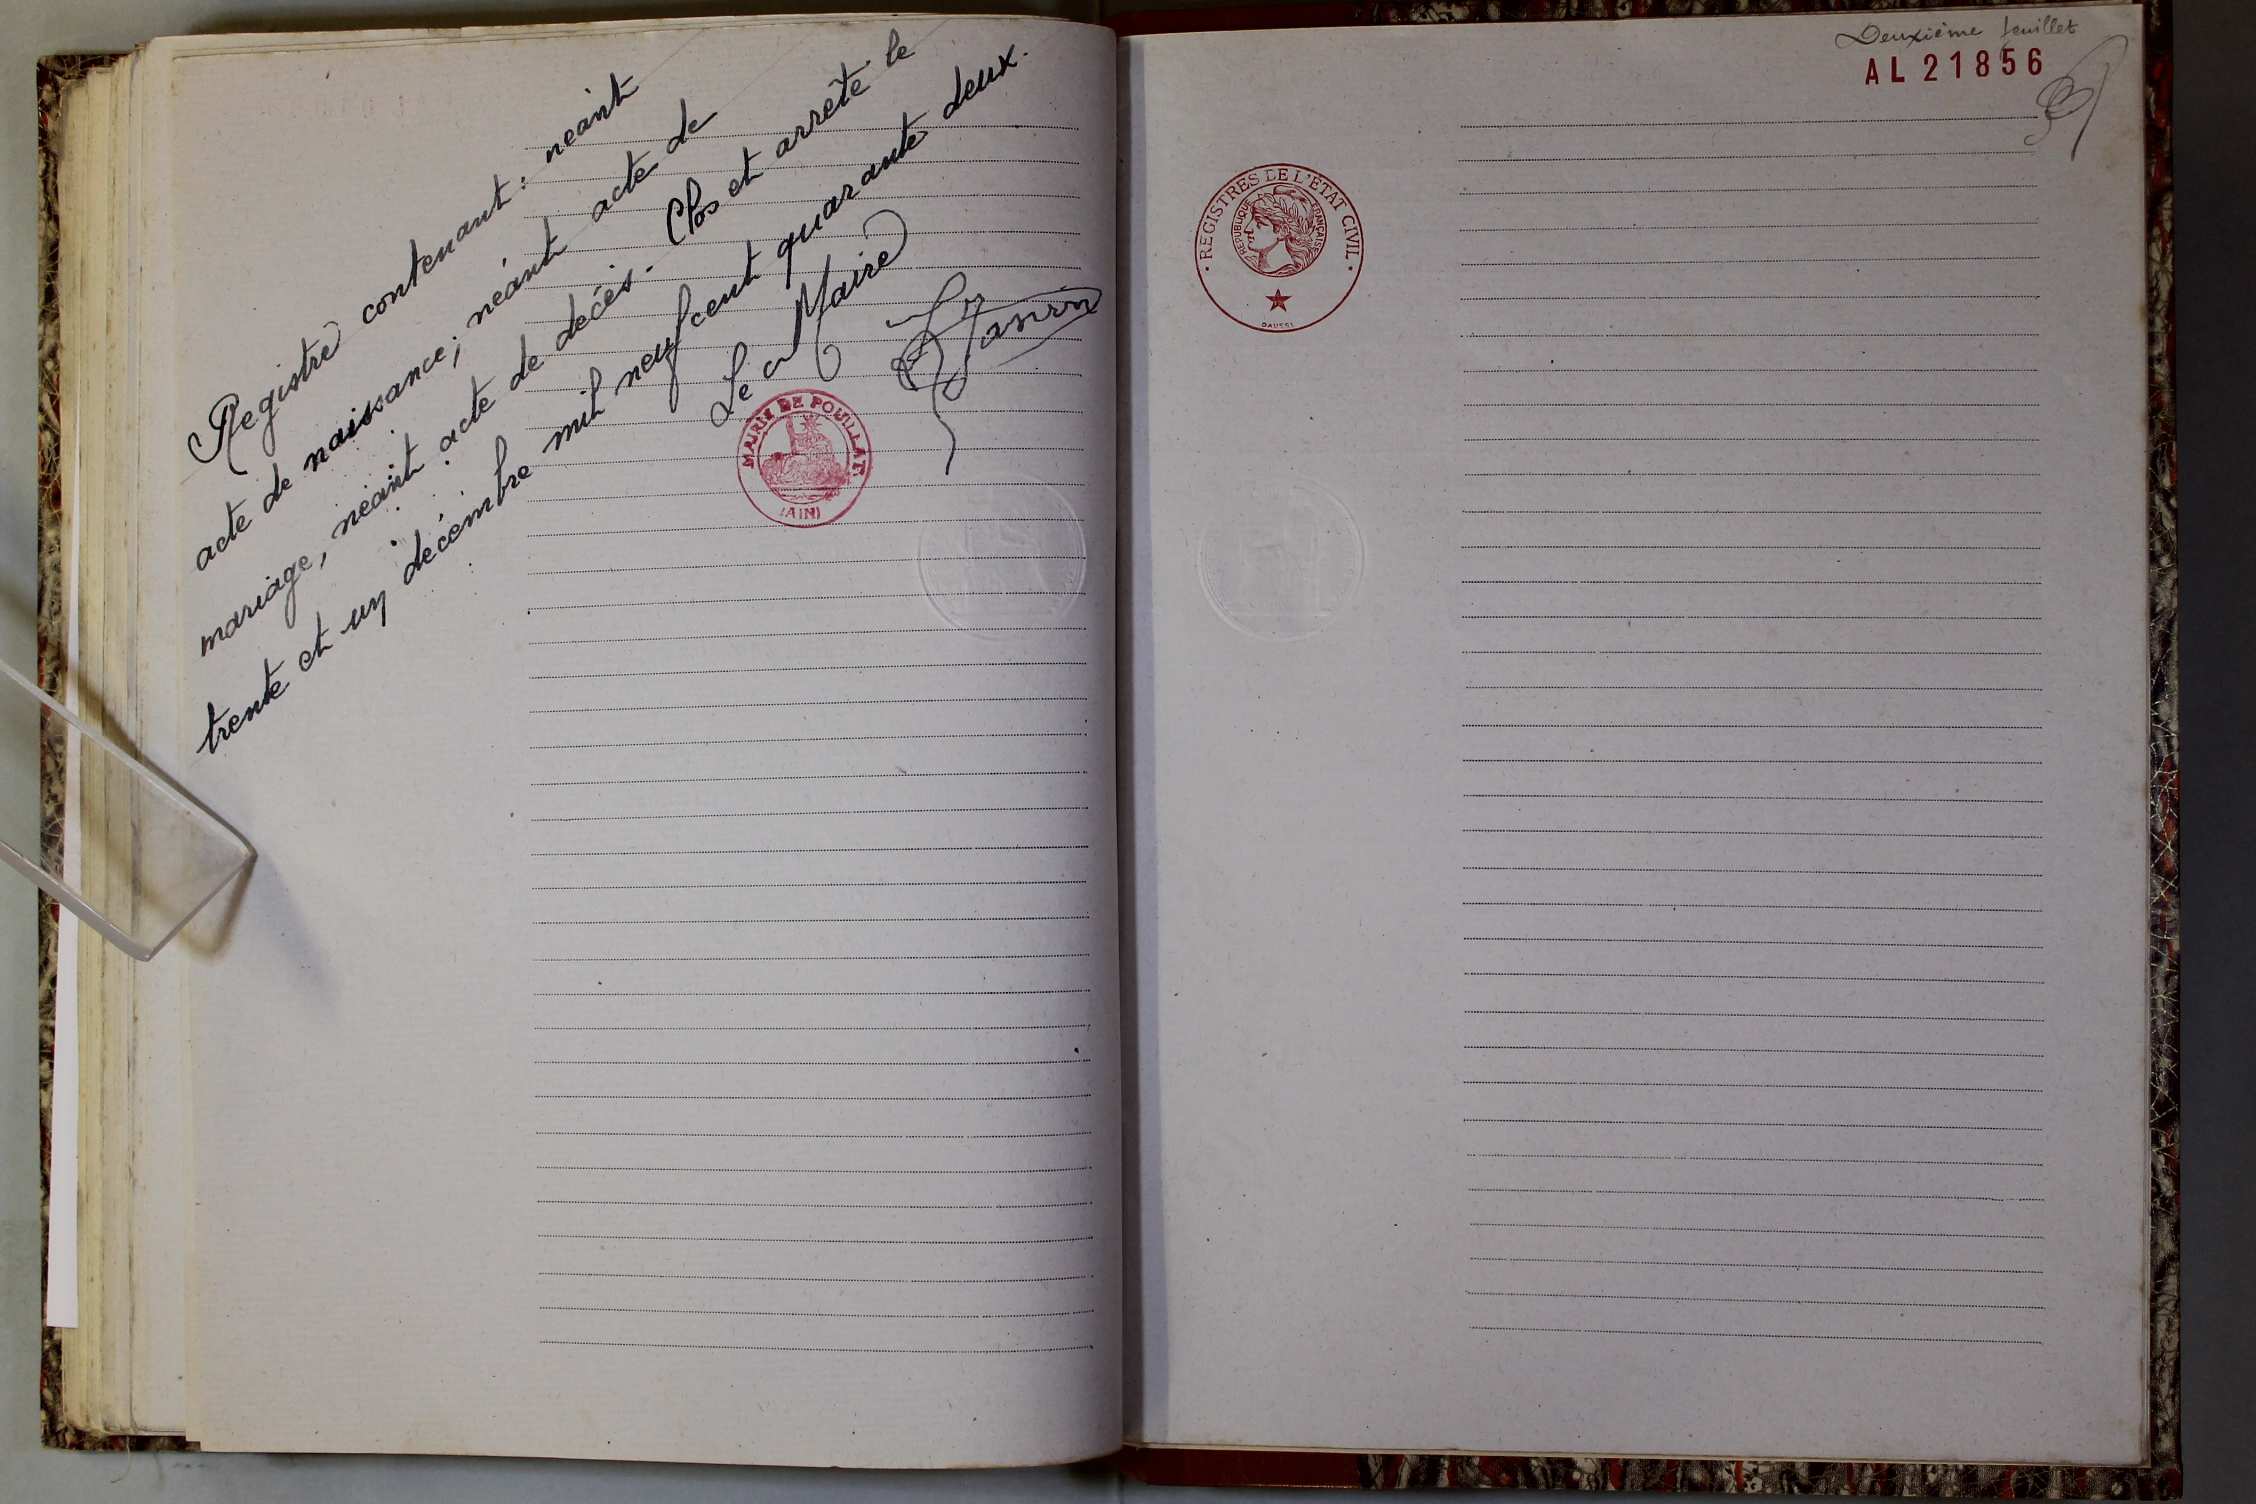 Registre contenant : néant
acte de naissance ; néant acte de
mariage, néant acte de décès. Clos et arrêté le
trente et un décembre mil neuf cent quarante deux.
Le Maire
MAIRIE DE POUILLAT
(AIN)
Deuxième feuillet
AL 21856
· REGISTRES DE L'ÉTAT CIVIL ·
RÉPUBLIQUE FRANÇAISE